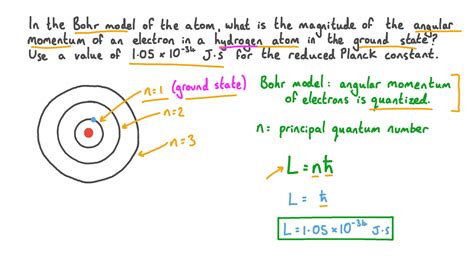 In the Bohr model of the atom, what is the magnitude of the angular
momentum of an electron in a hydrogen atom in the ground state?
Use a value of 1.05 × 10⁻³⁴ J·s for the reduced Planck constant.
n=1 (ground state)
n=2
n=3
Bohr model: angular momentum
of electrons is quantized.
n= principal quantum number
L = nħ
L = ħ
L = 1.05 × 10⁻³⁴ J.s